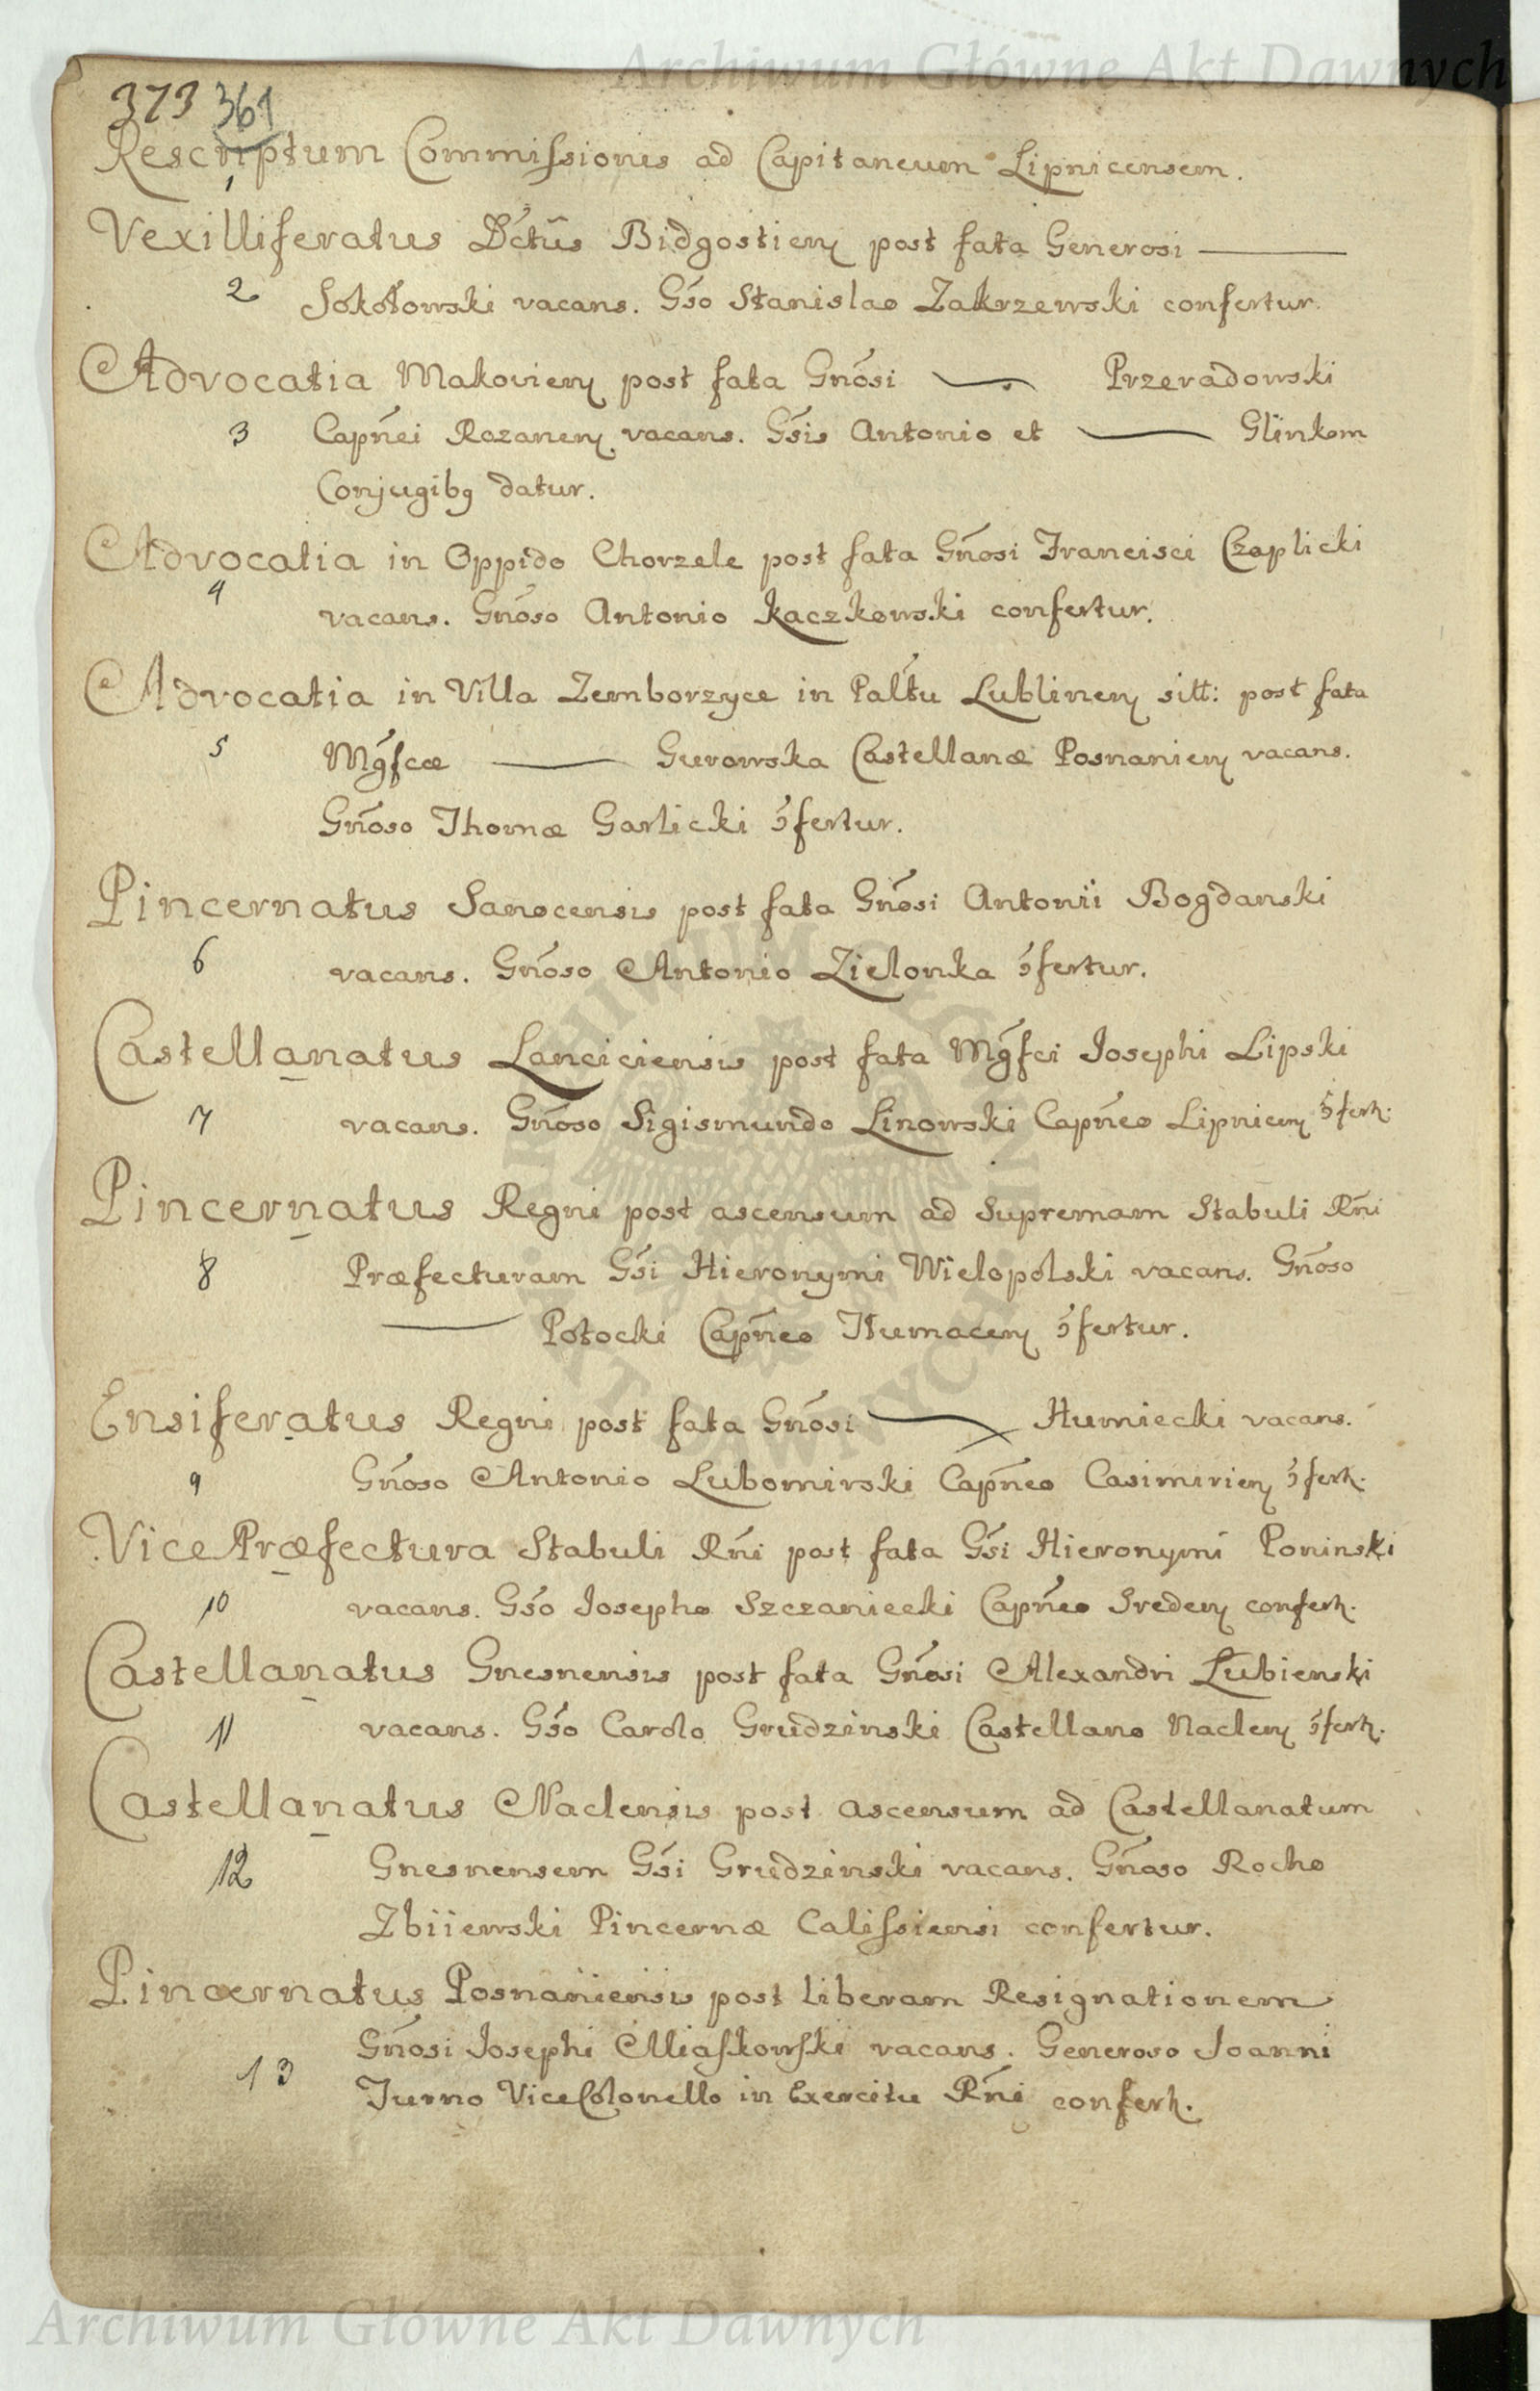 Archiwum Główne Akt Dawnych
373 361
Rescriptum Commissionis ad Capitaneum Lipnicensem.
1
Vexilliferatus Dctûs Bidgostien post fata Generosi ———
2 Sokołowski vacans. Gso Stanislao Zakrzewski confertur.
Advocatia Makovien post fata Gnosi —— Przeradowski
3 Capnei Rozanen vacans. Gsis Antonio et —— Glinkom
Conjugibq datur.
Advocatia in Oppido Chorzele post fata Gnosi Francisci Czaplicki
4 vacans. Gnoso Antonio Kaczkowski confertur.
Advocatia in Villa Zemborzyce in Paltu Lublinen sitt: post fata
5 Mgfcæ —— Gurowska Castellanæ Posnanien vacans.
Gnoso Thomæ Garlicki ɔfertur.
Pincernatus Sanocensis post fata Gnosi Antonii Bogdanski
6 vacans. Gnoso Antonio Zielonka ɔfertur.
Castellanatus Lanciciensis post fata Mgfci Josephi Lipski
7 vacans. Gnoso Sigismundo Linowski Capneo Lipnicen ɔfert.
Pincernatus Regni post ascensum ad Supremam Stabuli Rni
8 Præfecturam Gsi Hieronymi Wielopolski vacans. Gnoso
—— Potocki Capneo Tłumacen ɔfertur.
Ensiferatus Regni post fata Gnosi —— Humiecki vacans.
9 Gnoso Antonio Lubomirski Capneo Casimirien ɔfert.
Vice Præfectura Stabuli Rni post fata Gsi Hieronymi Poninski
10 vacans. Gso Josepho Szczaniecki Capneo Sreden confert.
Castellanatus Gnesnensis post fata Gnosi Alexandri Łubienski
11 vacans. Gso Carolo Grudzinski Castellano Naclen ɔfert.
Castellanatus Naclensis post ascensum ad Castellanatum
12 Gnesnensem Gsi Grudzinski vacans. Gnoso Rocho
Zbiiewski Pincernæ Calissiensi confertur.
Pincernatus Posnaniensis post liberam Resignationem
Gnosi Josephi Miaskowski vacans. Generoso Joanni
13 Turno ViceColonello in Exercitu Rni confert.
Archiwum Główne Akt Dawnych